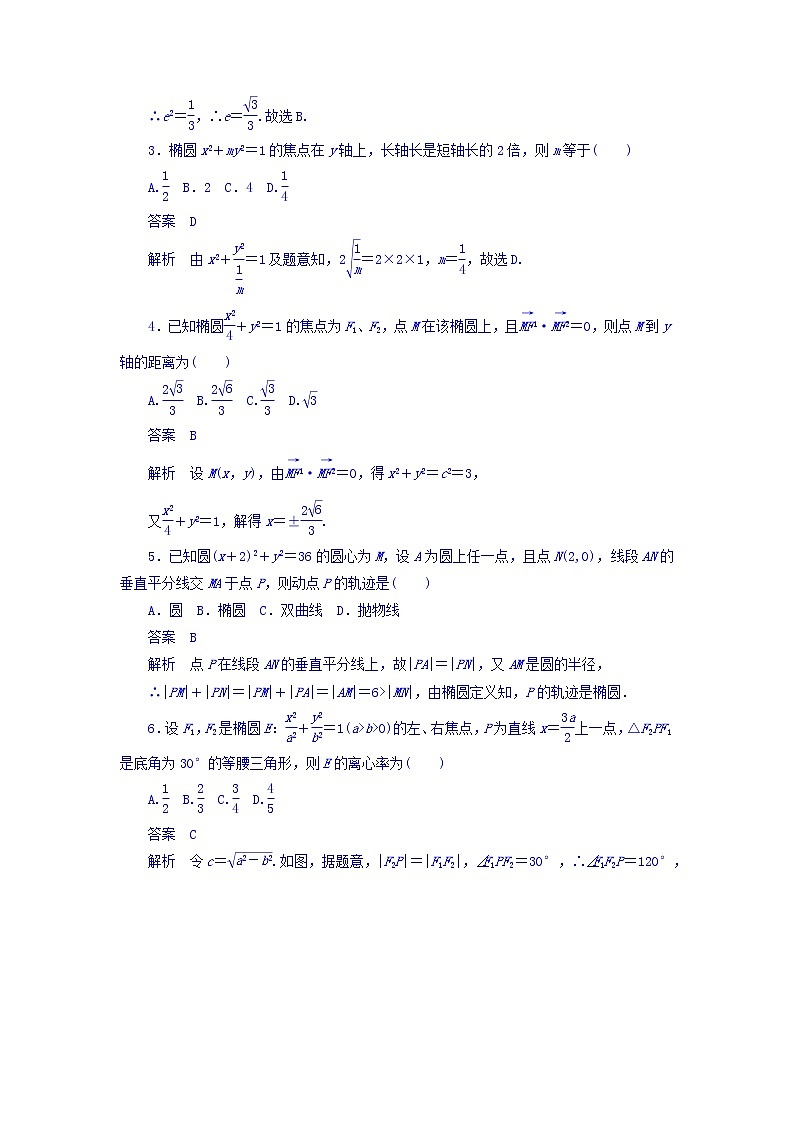 ∴e²=1/3,∴e=√3/3.故选B.
3.椭圆x²+my²=1的焦点在y轴上,长轴长是短轴长的2倍,则m等于(　　)
A.1/2　B.2　C.4　D.1/4
答案　D
解析　由x²+y²/(1/m)=1及题意知,2√(1/m)=2×2×1,m=1/4,故选D.
4.已知椭圆x²/4+y²=1的焦点为F₁、F₂,点M在该椭圆上,且→MF₁·→MF₂=0,则点M到y
轴的距离为(　　)
A.2√3/3　B.2√6/3　C.√3/3　D.√3
答案　B
解析　设M(x,y),由→MF₁·→MF₂=0,得x²+y²=c²=3,
又x²/4+y²=1,解得x=±2√6/3.
5.已知圆(x+2)²+y²=36的圆心为M,设A为圆上任一点,且点N(2,0),线段AN的
垂直平分线交MA于点P,则动点P的轨迹是(　　)
A.圆　B.椭圆　C.双曲线　D.抛物线
答案　B
解析　点P在线段AN的垂直平分线上,故|PA|=|PN|,又AM是圆的半径,
∴|PM|+|PN|=|PM|+|PA|=|AM|=6>|MN|,由椭圆定义知,P的轨迹是椭圆.
6.设F₁,F₂是椭圆E:x²/a²+y²/b²=1(a>b>0)的左、右焦点,P为直线x=3a/2上一点,△F₂PF₁
是底角为30°的等腰三角形,则E的离心率为(　　)
A.1/2　B.2/3　C.3/4　D.4/5
答案　C
解析　令c=√(a²-b²).如图,据题意,|F₂P|=|F₁F₂|,∠F₁PF₂=30°,∴∠F₁F₂P=120°,